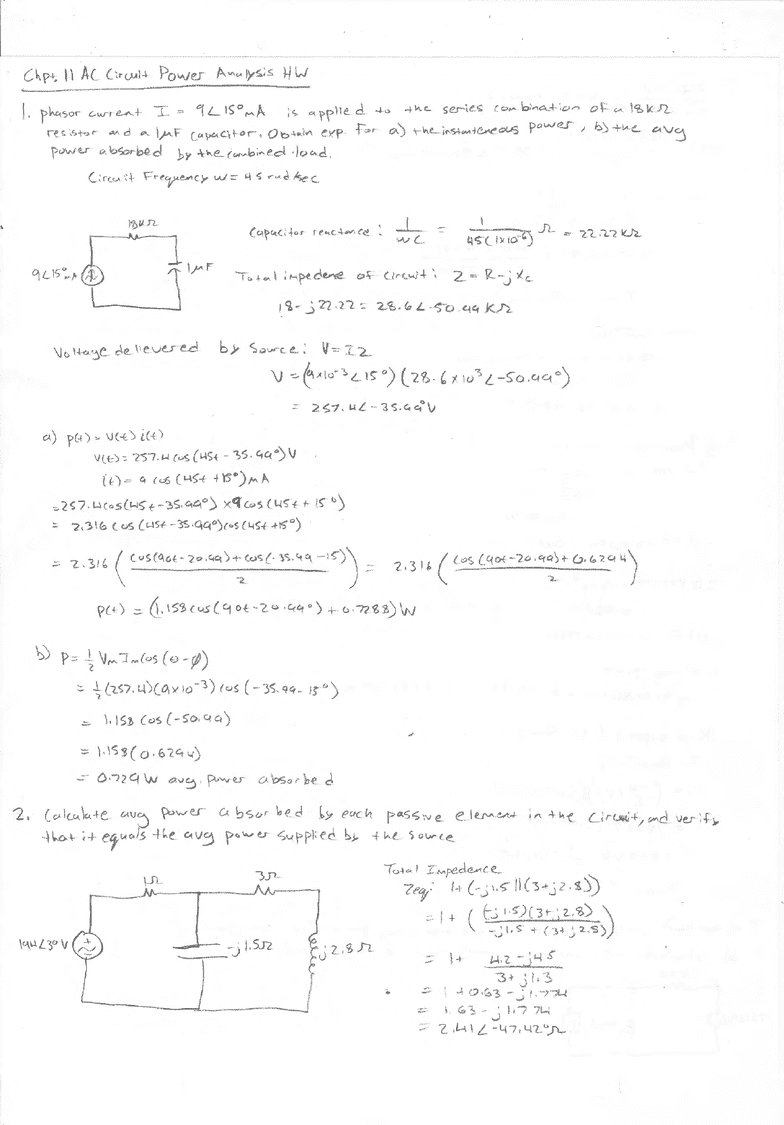 Chpt. 11 AC Circuit Power Analysis HW
1. phasor current I = 9∠15° mA is applied to the series combination of a 18kΩ
resistor and a 1μF capacitor. Obtain exp. For a) the instanteneous power, b) the avg
power absorbed by the combined load.
Circuit Frequency w = 45 rad/sec
18kΩ
9∠15° mA
1μF
Capacitor reactance: 1/wC = 1/45(1×10⁻⁶) Ω = 22.22kΩ
Total impedene of circuit: Z = R-jXc
18-j22.22 = 28.6∠-50.99 kΩ
Voltage delievered by source: V=IZ
V = (9×10⁻³∠15°)(28.6×10³∠-50.99°)
= 257.4∠-35.99°V
a) p(t) = v(t) i(t)
v(t) = 257.4 cos(45t - 35.99°)V
i(t) = 9 cos(45t + 15°) mA
= 257.4cos(45t-35.99°) × 9cos(45t + 15°)
= 2.316 cos(45t-35.99°)cos(45t+15°)
= 2.316 ( cos(90t-20.99)+cos(-35.99-15) / 2 ) = 2.316 ( cos(90t-20.99)+0.6294 / 2 )
p(t) = (1.158cos(90t-20.99°) + 0.7288)W
b) P = ½ Vm Im cos(θ-φ)
= ½(257.4)(9×10⁻³) cos(-35.99-15°)
= 1.158 cos(-50.99)
= 1.158(0.6294)
= 0.729W avg. power absorbed
2. Calculate avg power absorbed by each passive element in the circuit, and verify
that it equals the avg power supplied by the source
1Ω
3Ω
194∠30°V
-j1.5Ω
j2.8Ω
Total Impedence
Zeq: 1+(-j1.5||(3+j2.8))
= 1+ ( (-j1.5)(3+j2.8) / -j1.5 + (3+j2.8) )
= 1+ 4.2-j4.5 / 3+j1.3
= 1+0.63-j1.774
= 1.63-j1.774
= 2.41∠-47.42°Ω